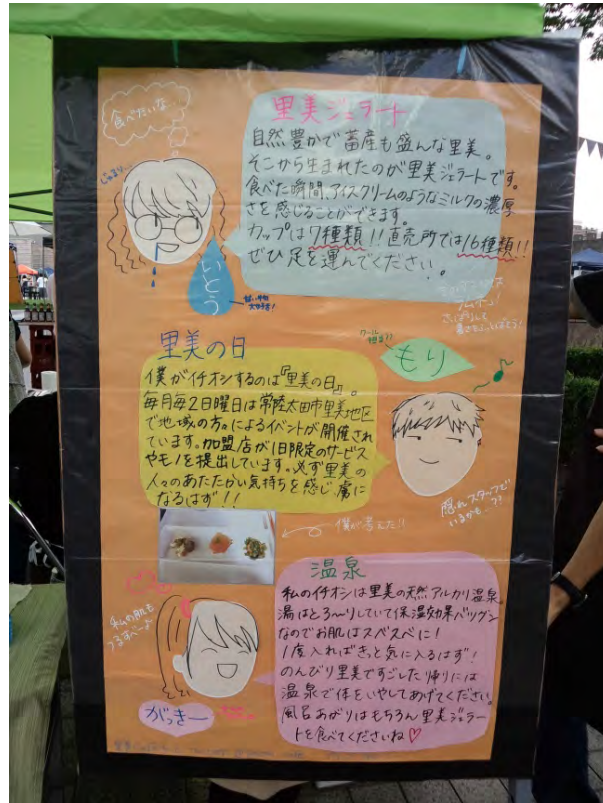 食べたいな…
里美ジェラート
自然豊かで畜産も盛んな里美。
そこから生まれたのが里美ジェラートです。
食べた瞬間、アイスクリームのようなミルクの濃厚
さを感じることができます。
カップは7種類!!直売所では16種類!!
ぜひ足を運んでください!。
じゅるり…
いとう
甘い物
大好き!
里美の日
僕がイチオシするのは『里美の日』。
毎月毎2日曜日は常陸太田市里美地区
で地域の方々によるイベントが開催され
ています。加盟店が1日限定のサービス
やモノを提出しています。必ず里美の
人々のあたたかい気持ちを感じ虜に
なるはず!!
クール
担当??
もり
隠れスタッフで
いるかも…??
僕が考えた!!
温泉
私のイチオシは里美の天然アルカリ温泉。
湯はとろ〜りしていて保温効果バツグン
なのでお肌はスベスベに!
1度入ればきっと気に入るはず!
のんびり里美ですごした帰りには
温泉で体をいやしてあげてください。
風呂あがりはもちろん里美ジェラー
トを食べてくださいね♡
私の肌も
つるすべ〜よ
がっきー